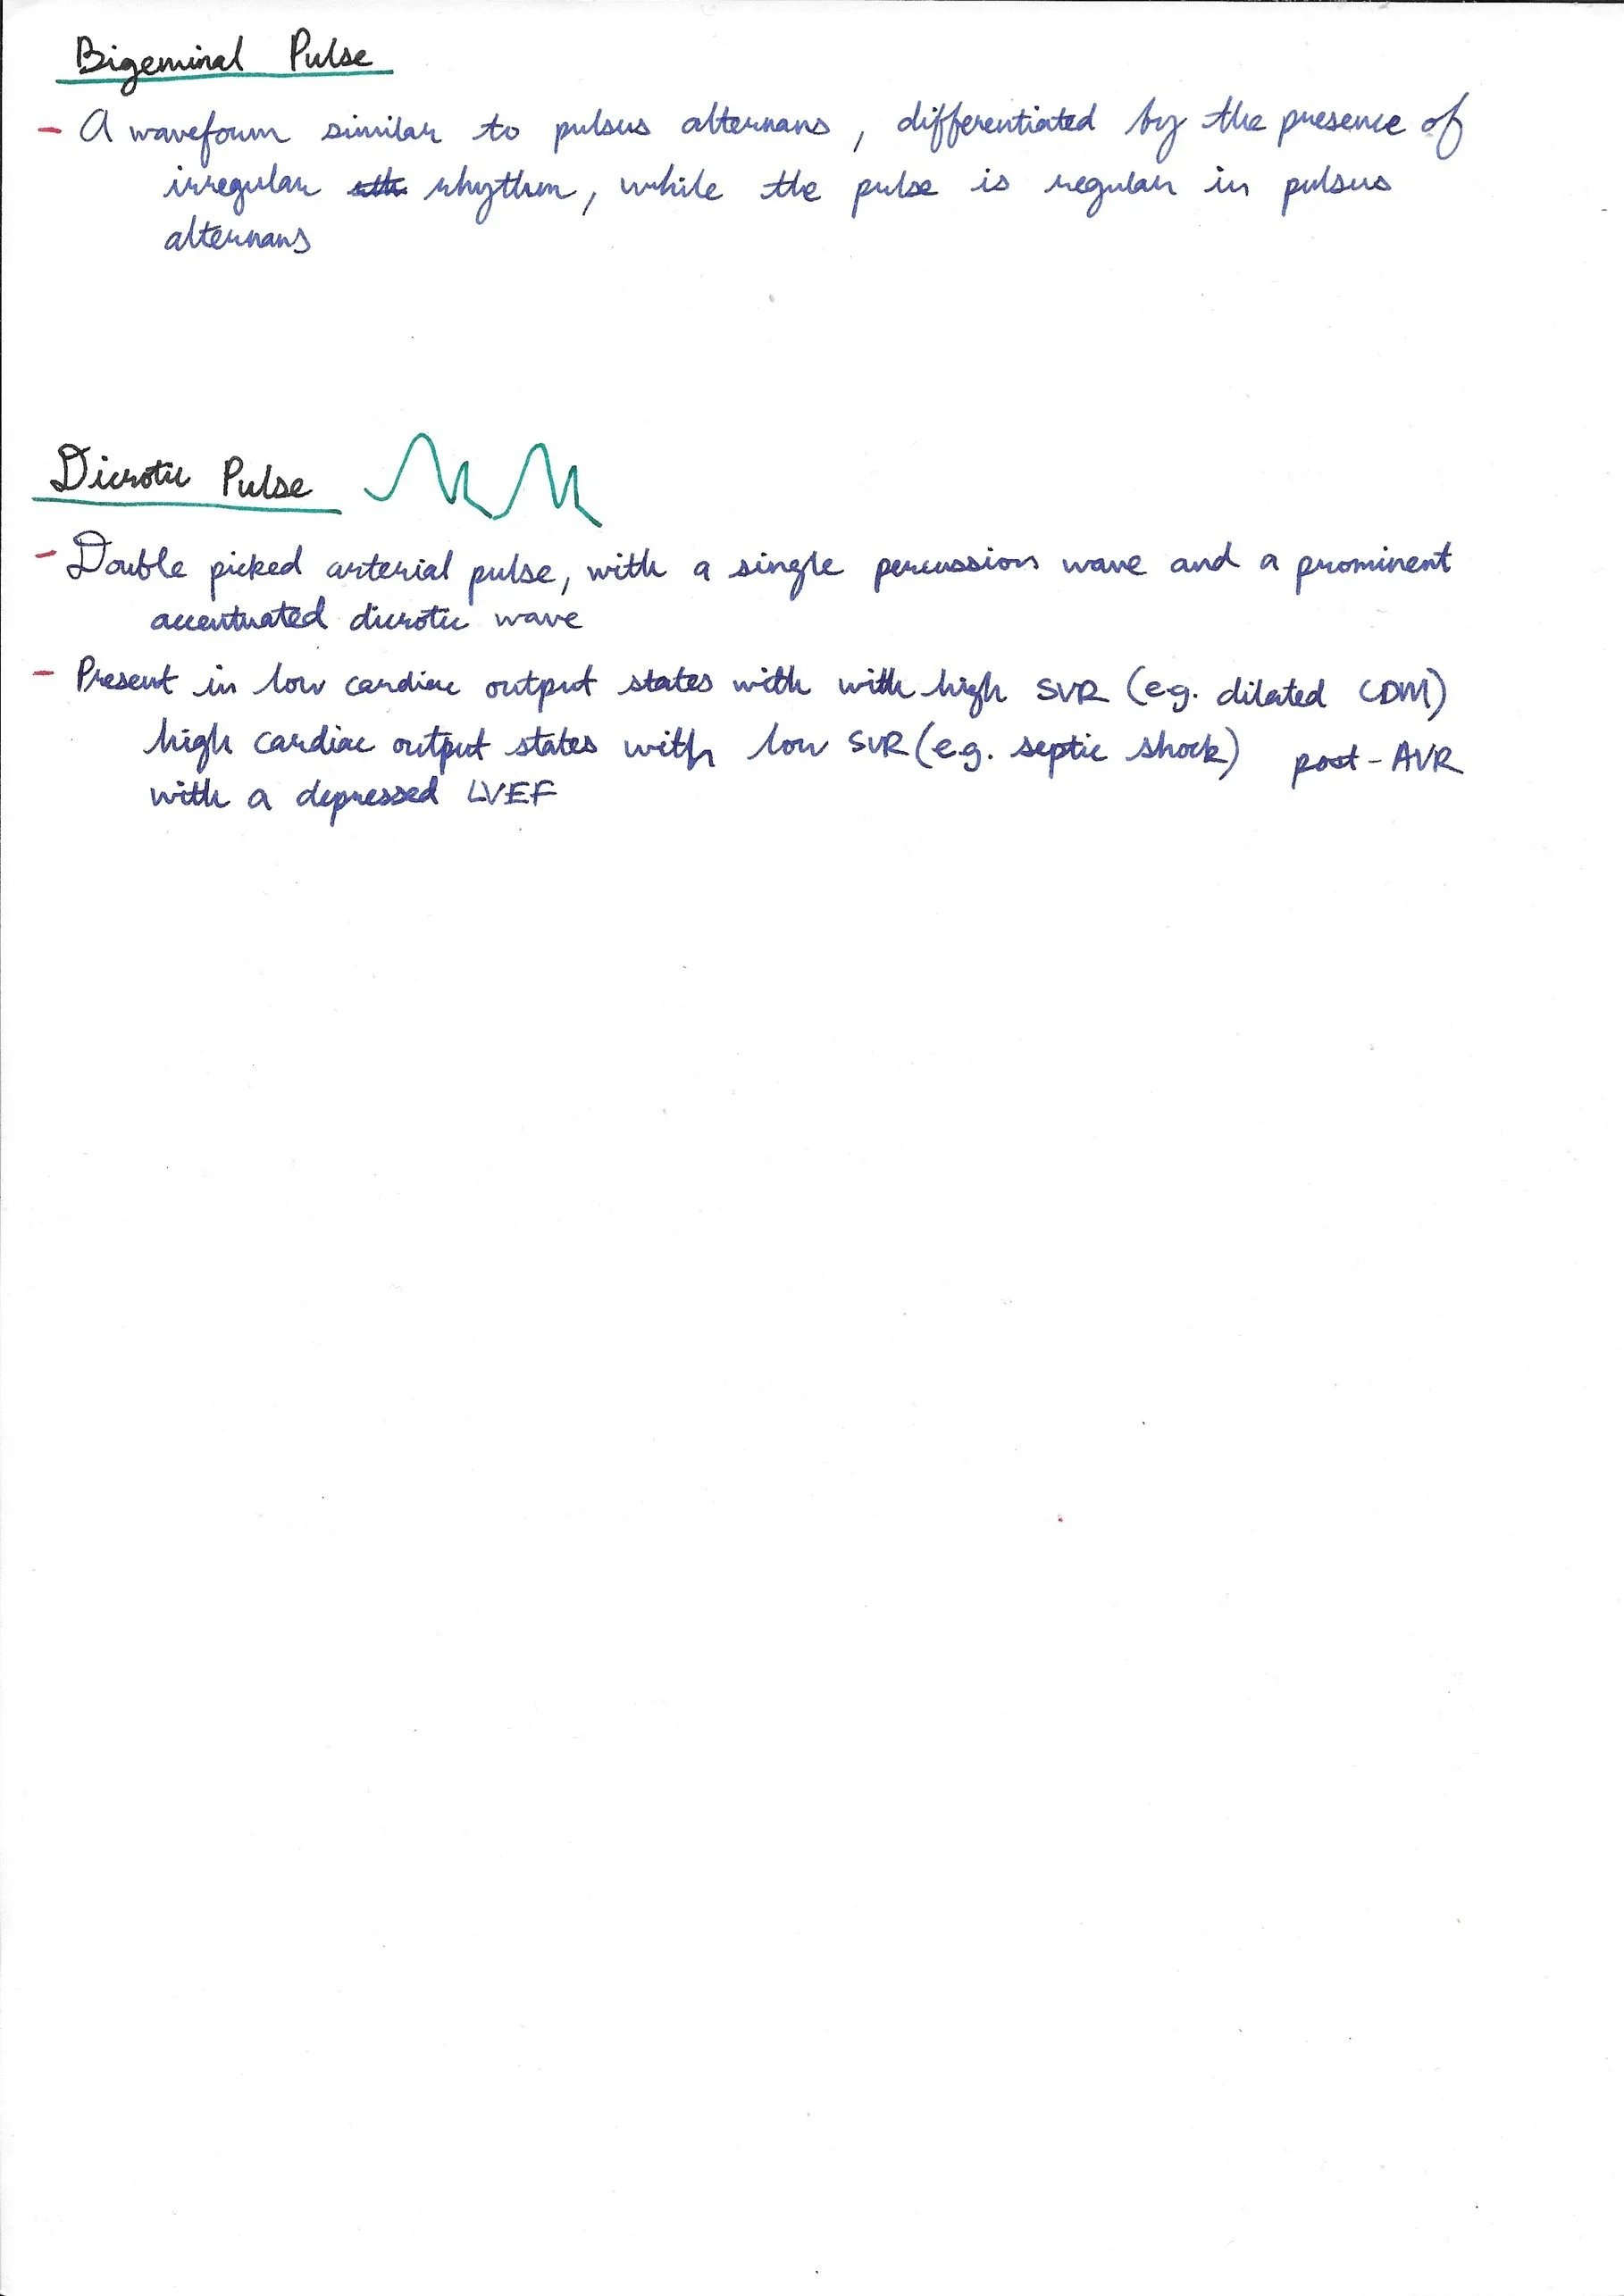 Bigeminal Pulse
- A waveform similar to pulsus alternans, differentiated by the presence of
irregular rhythm, while the pulse is regular in pulsus
alternans
Dicrotic Pulse
- Double picked arterial pulse, with a single percussion wave and a prominent
accentuated dicrotic wave
- Present in low cardiac output states with with high SVR (e.g. dilated CDM)
high cardiac output states with low SVR (e.g. septic shock) post-AVR
with a depressed LVEF